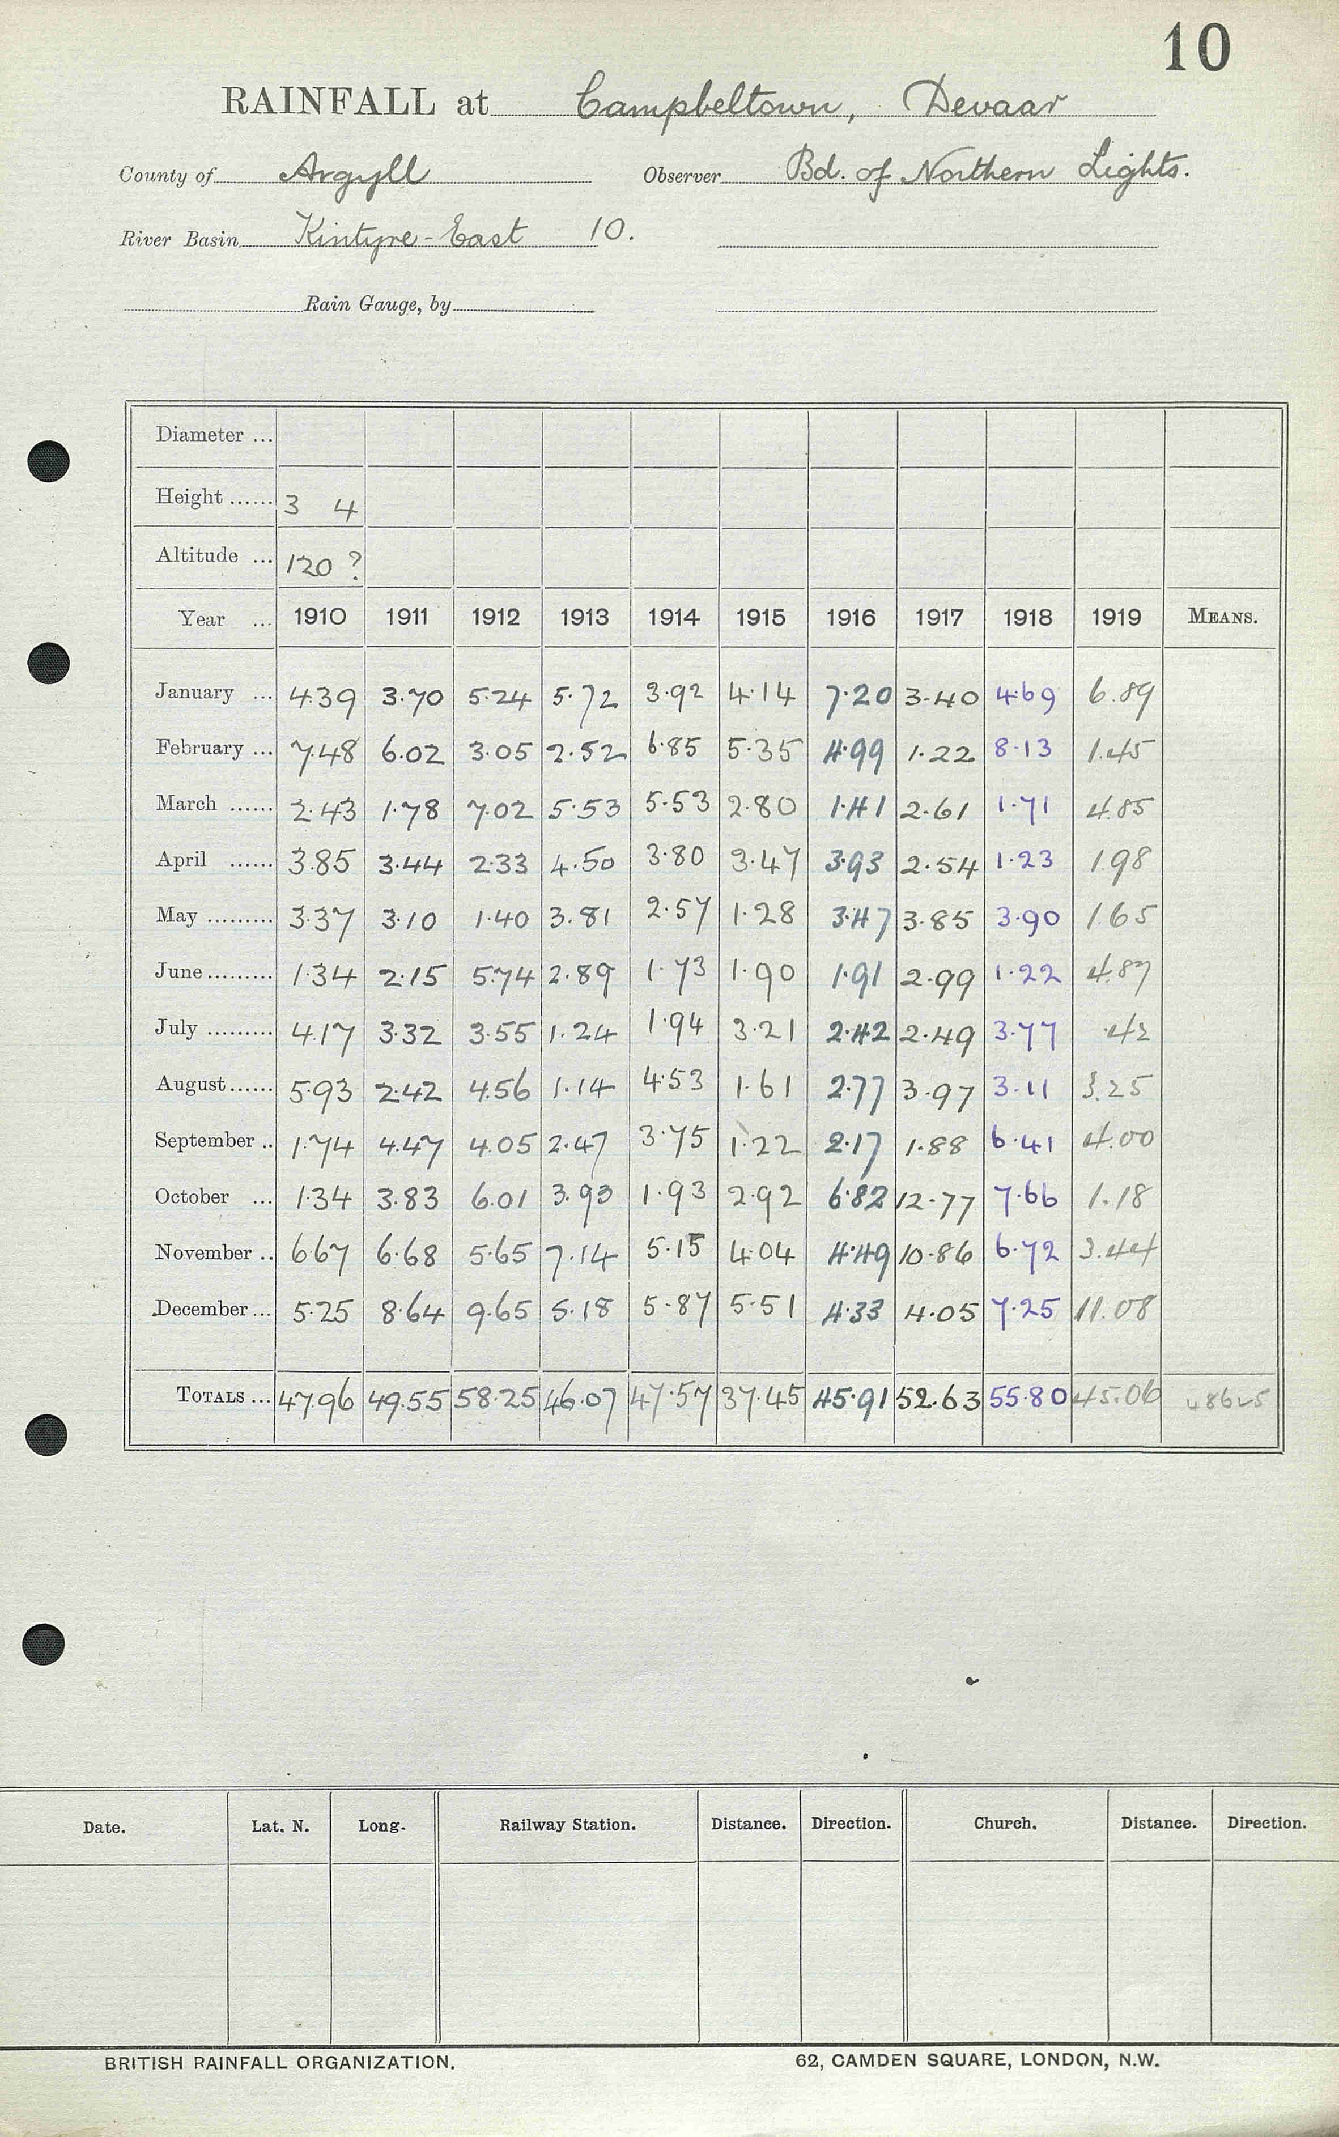 10
RAINFALL at Campbeltown, Devaar
County of Argyll Observer Bd. of Northern Lights.
River Basin Kintyre-East 10.
Rain Gauge, by
Diameter ...
Height ...... 3 4
Altitude ... 120 ?
Year ... 1910 1911 1912 1913 1914 1915 1916 1917 1918 1919 MEANS.
January ... 4.39 3.70 5.24 5.72 3.92 4.14 7.20 3.40 4.69 6.89
February ... 7.48 6.02 3.05 2.52 6.85 5.35 4.99 1.22 8.13 1.45
March ...... 2.43 1.78 7.02 5.53 5.53 2.80 1.41 2.61 1.71 4.85
April ...... 3.85 3.44 2.33 4.50 3.80 3.47 3.93 2.54 1.23 1.98
May ......... 3.37 3.10 1.40 3.81 2.57 1.28 3.47 3.85 3.90 1.65
June ......... 1.34 2.15 5.74 2.89 1.73 1.90 1.91 2.99 1.22 4.87
July ......... 4.17 3.32 3.55 1.24 1.94 3.21 2.42 2.49 3.77 .42
August ...... 5.93 2.42 4.56 1.14 4.53 1.61 2.77 3.97 3.11 3.25
September .. 1.74 4.47 4.05 2.47 3.75 1.22 2.17 1.88 6.41 4.00
October ... 1.34 3.83 6.01 3.93 1.93 2.92 6.82 12.77 7.66 1.18
November .. 6.67 6.68 5.65 7.14 5.15 4.04 4.49 10.86 6.72 3.44
December ... 5.25 8.64 9.65 5.18 5.87 5.51 4.33 4.05 7.25 11.08
TOTALS ... 47.96 49.55 58.25 46.07 47.57 37.45 45.91 52.63 55.80 45.06 48625
Date. Lat. N. Long. Railway Station. Distance. Direction. Church. Distance. Direction.
BRITISH RAINFALL ORGANIZATION. 62, CAMDEN SQUARE, LONDON, N.W.